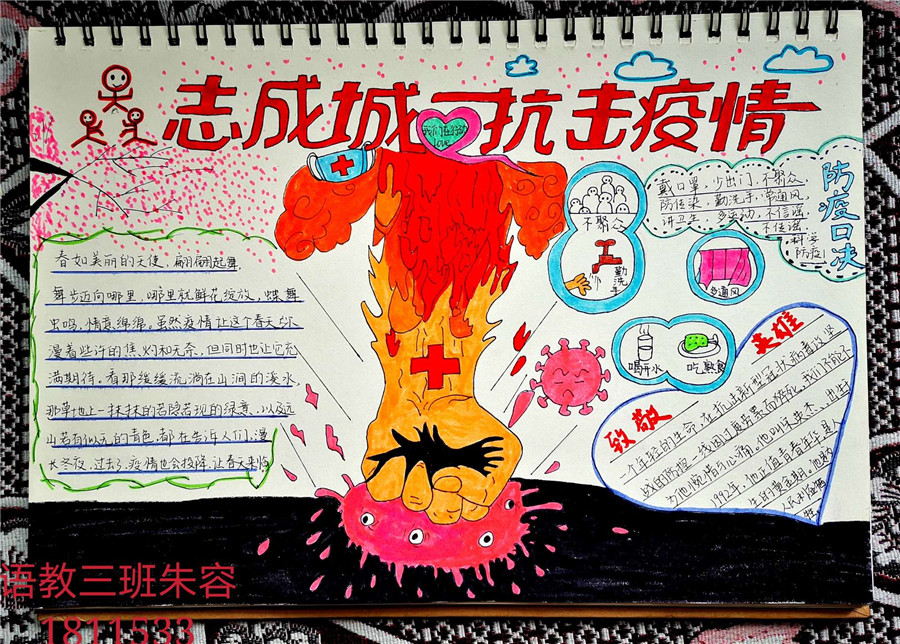 志成城 抗击疫情
我们在行动
Love
春如美丽的天使,翩翩起舞,
舞步迈向哪里,哪里就鲜花绽放,蝶舞
虫鸣,情意绵绵。虽然疫情让这个春天弥
漫着些许的焦灼和无奈,但同时也让它充
满期待,看那缓缓流淌在山涧的溪水,
那草地上一抹抹的若隐若现的绿意,以及远
山若有似无的青色,都在告诉人们,漫
长冬夜,过去了,疫情也会投降,让春天来临
不聚众
勤洗手
戴口罩,少出门,不聚众
防传染,勤洗手,常通风,
讲卫生,多运动,不信谣
不传谣,
科学
防疫!
防疫口决
多通风
喝开水
吃熟食
致敬英雄
一个年轻的生命,在抗击新型冠状病毒攻坚
战的防控一线因过度劳累而牺牲,我们不能不
为他惋惜与心痛。他叫宋英杰、出生于
1992年,他正值青春年华是人
生的黄金期。他为
人民
语教三班朱容
1811533